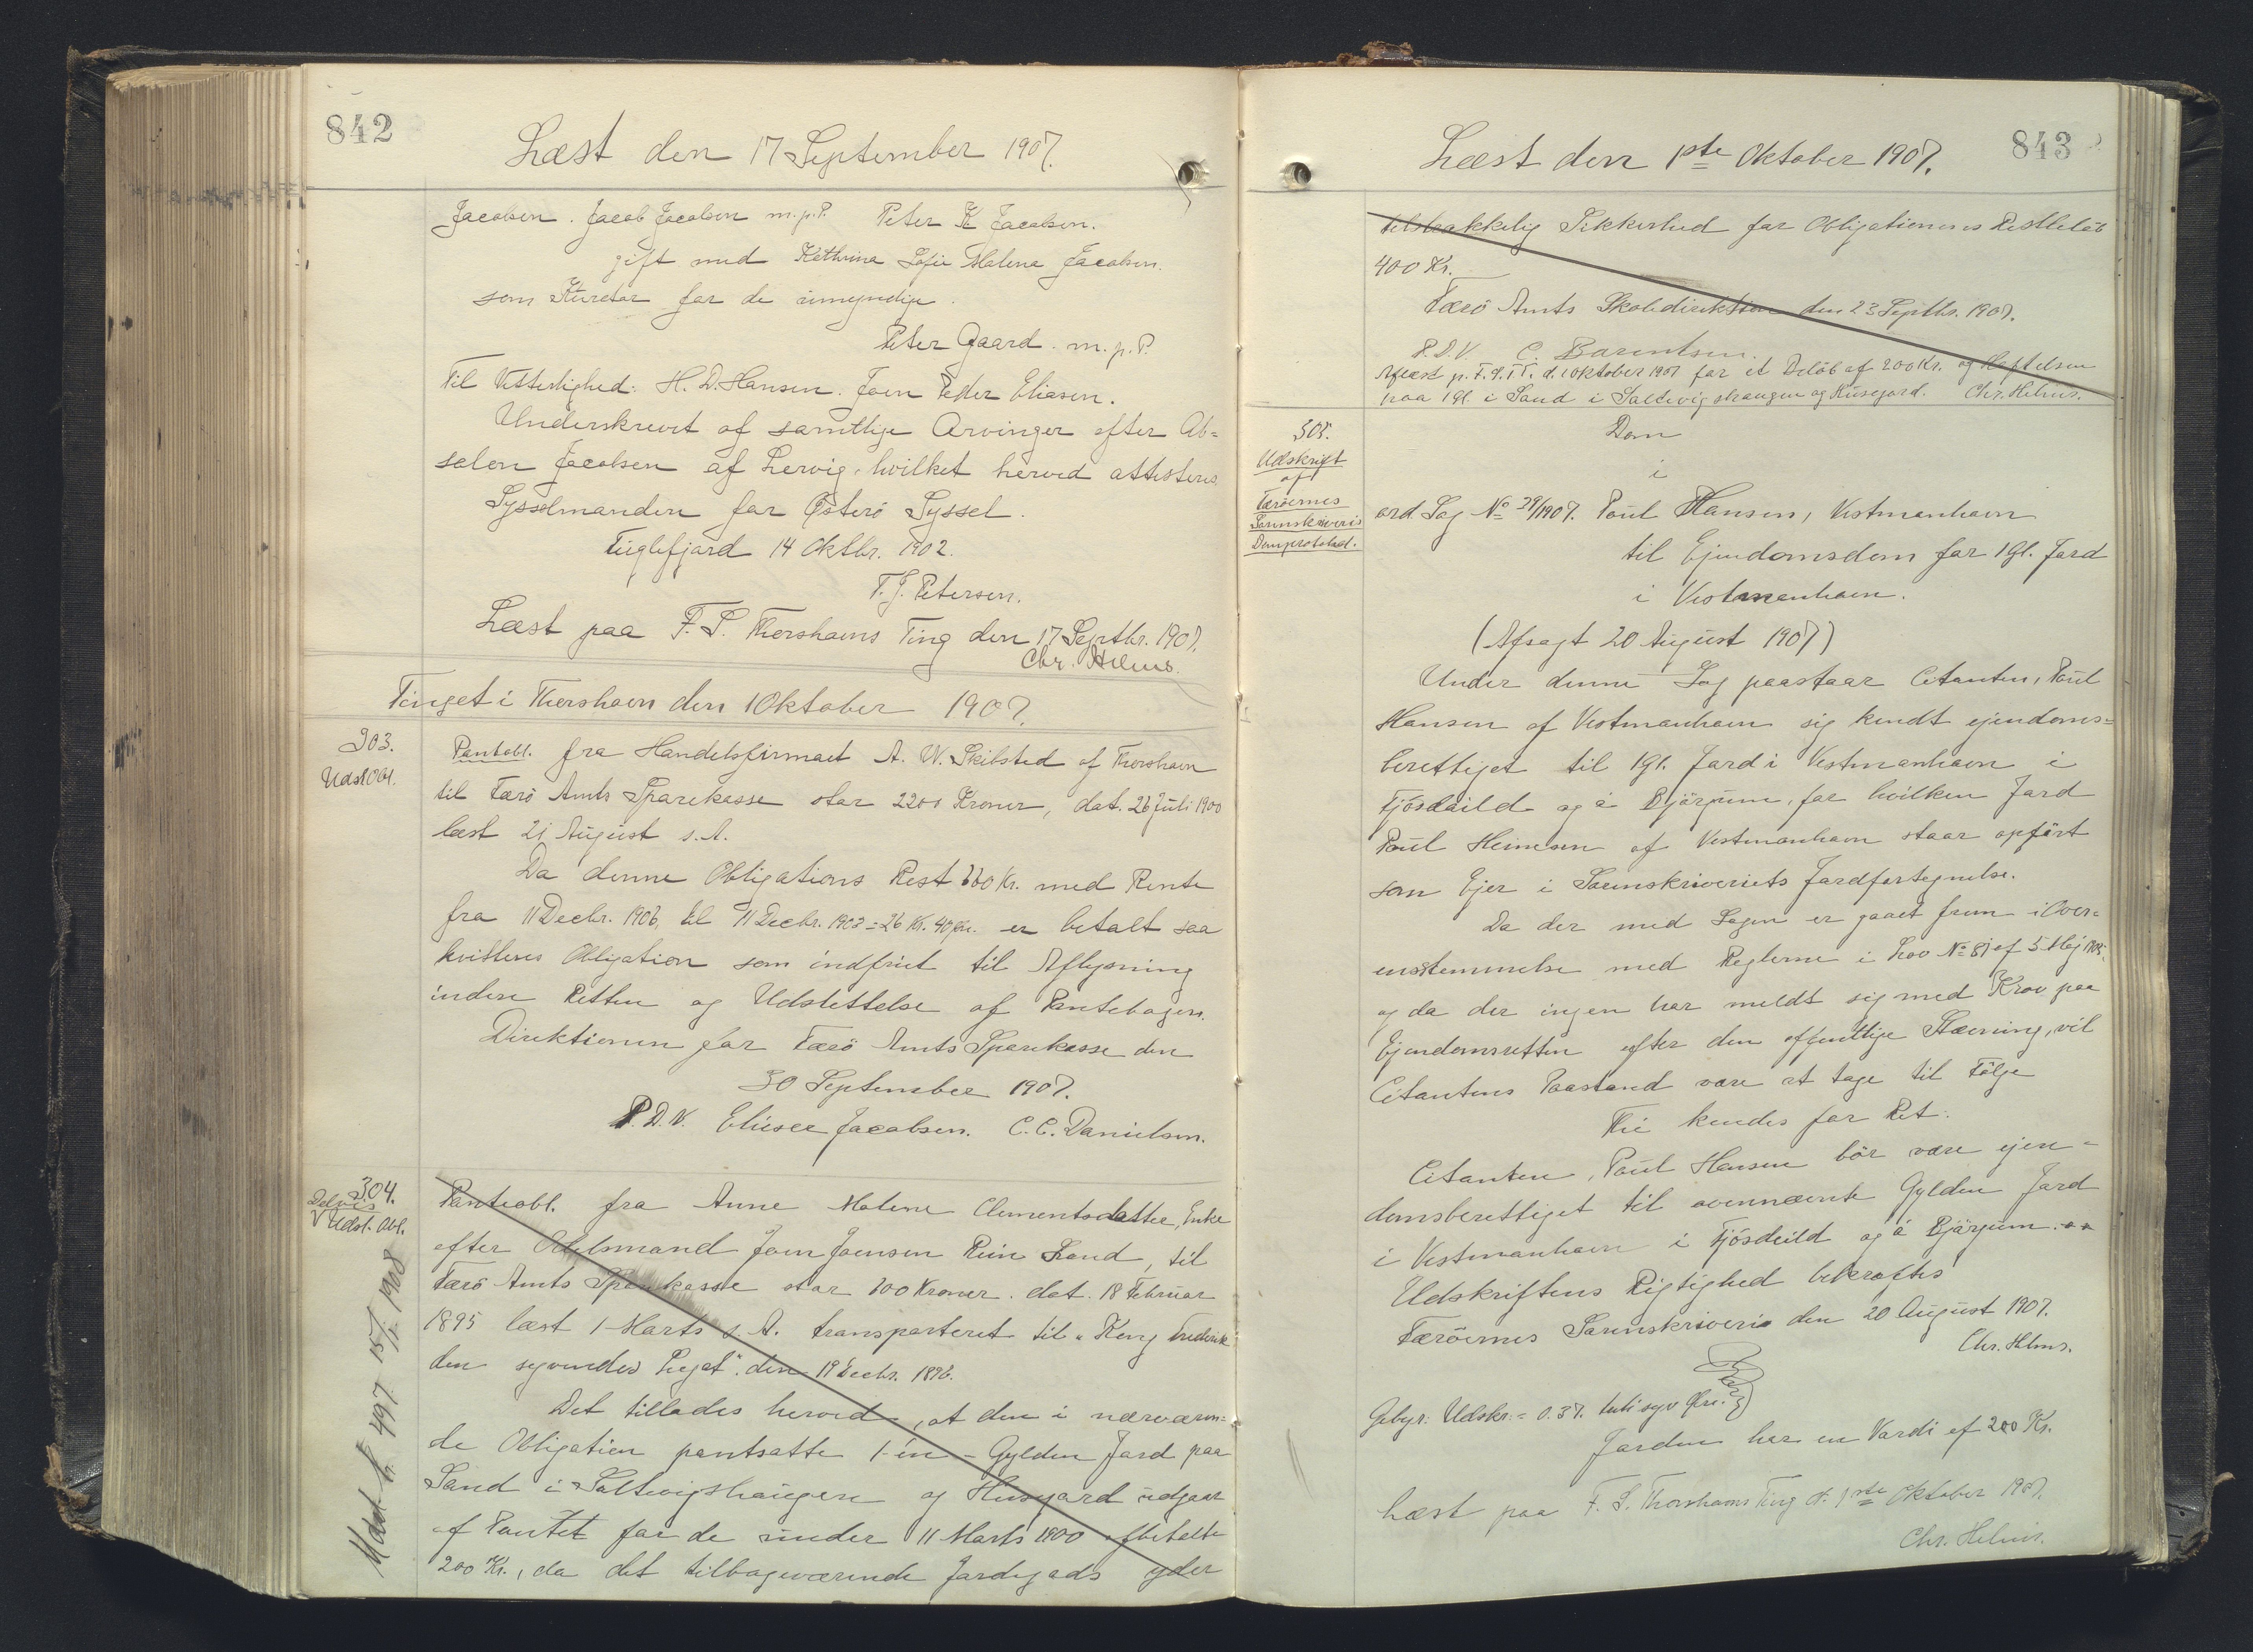 842
Læst den 17 September 1907.
Jacobsen. Jacob Jacobsen m.p.P. Peter K Jacobsen.
gift med Kathrina Sofie Malena Jacobsen.
som Kurator for de umyndige.
Peter Gaard. m.p.P.
Til Vitterlighed: H. D. Hansen. Joen Peter Eliasen.
Underskrevet af samtlige Arvinger efter Ab=
salon Jacobsen af Lervig, hvilket herved attesteres.
Sysselmanden for Østerö Syssel.
Fuglefjord 14 Oktbr. 1902.
T. J. Petersen.
Læst paa F. S. Thorshavns Ting den 17 Septbr. 1907.
Chr. Helms.
Tinget i Thorshavn den 1 Oktober 1907.
303.
Udsl Obl.
Pantobl. fra Handelsfirmaet A. W. Skibsted af Thorshavn
til Færö Amts Sparekasse stor 2200 Kroner, dat. 26 Juli 1900
læst 21 August s.A.
Da denne Obligations Rest 660 Kr. med Rente
fra 11 Decbr. 1906, til 11 Decbr. 1902 = 26 Kr. 40 Øre. er betalt saa
kvitteres Obligation som indfriet til Aflysning
inden Retten og Udslettelse af Pantebogen.
Direktionen for Færö Amts Sparekasse den
30 September 1907.
P.D.V. Elieser Jacobsen. C. C. Danielsen.
304.
Delvis
Udsl. Obl.
Udsl. h. 497 15/1 1908
Panteobl. fra Anne Malene Clementsdatter, Enke
efter Odelsmand Joen Joensen Ruin Sand, til
Færö Amts Sparekasse stor 600 Kroner. dat. 18 Februar
1895 læst 1 Marts s.A. transporteret til "Kong Frederik
den syvendes Legat". den 19 Decbr. 1896.
Det tillades herved, at den i nærværen=
de Obligation pantsatte 1-en- Gylden Jord paa
Sand i Saltvigshaugen og Husegard udgaar
af Pantet for de under 11 Marts 1900 afbetalte
200 Kr., da det tilbageværende Jordegods yder
843
Læst den 1ste Oktober 1907.
tilstrækkelig Sikkerhed for Obligationens Restbelöb
400 Kr.
Færö Amts Skoledirektion den 23 Septbr. 1907.
P.D.V. C. Barentsen.
Aflæst p. F.S.T.T. d. 1 Oktober 1907 for et Belöb af 200 Kr. og Hæftelsen
paa 1 gl. i Sand i Saltevigshaugen og Husegard. Chr. Helms.
305.
Udskrift
af
Færöernes
Sorenskriveris
Domprotokol.
Dom
i
ord. Sag No 29/1907. Poul Hansen, Vestmanhavn
til Ejendomsdom for 1 Gl. Jord
i Vestmanhavn.
(Afsagt 20 August 1907)
Under denne Sag paastaar Citanten, Poul
Hansen af Vestmanhavn sig kendt ejendoms=
berettiget til 1 gl. Jord i Vestmanhavn i
Fjósdeild og á Bjørgum, for hvilken Jord
Poul Heinesen af Vestmanhavn staar opfört
som Ejer i Sorenskriveriets Jordfortegnelse.
Da der med Sagen er gaaet frem i Over=
ensstemmelse med Reglerne i Lov No 81 af 5 Maj
og da der ingen har meldt sig med Krav paa
Ejendomsretten efter den offentlige Stævning, vil
Citantens Paastand være at tage til Fölge
Thi kendes for Ret:
Citanten, Poul Hansen bör være ejen=
domsberettiget til ovennævnte Gylden Jord
i Vestmanhavn i Fjósdeild og á Bjørgum.
Udskriftens Rigtighed bekræftes
Færöernes Sorenskriveri den 20 August 1907.
Chr. Helms.
Gebyr: Udskr. = 0.37. tretisyv Øre.
Jorden har en Værdi af 200 Kr.
Læst paa F. S. Thorshavns Ting d. 1ste Oktober 1907.
Chr. Helms.